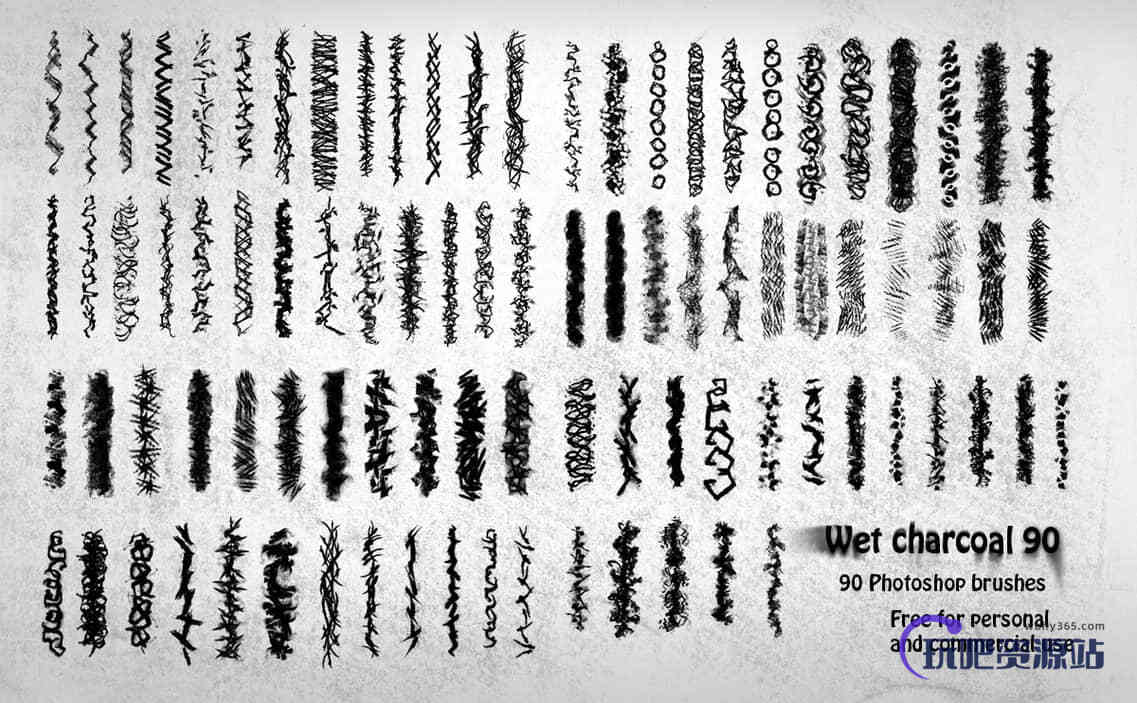 Wet charcoal 90
90 Photoshop brushes
Free for personal
and commercial use
玩吧资源站